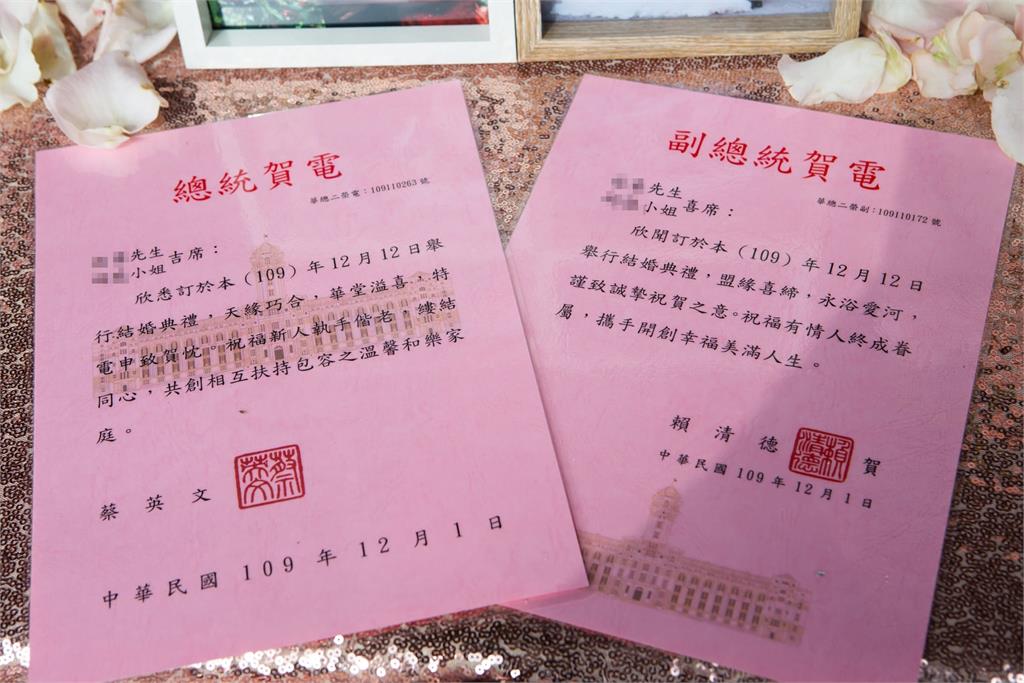 總統賀電
華總二榮電：109110263號
先生
小姐 吉席：
欣悉訂於本（109）年12月12日舉
行結婚典禮，天緣巧合，華堂溢喜，特
電申致賀忱。祝福新人執手偕老，縷結
同心，共創相互扶持包容之溫馨和樂家
庭。
蔡英文
蔡英文
中華民國109年12月1日
副總統賀電
華總二榮副：109110172號
先生
小姐 喜席：
欣聞訂於本（109）年12月12日
舉行結婚典禮，盟緣喜締，永浴愛河，
謹致誠摯祝賀之意。祝福有情人終成眷
屬，攜手開創幸福美滿人生。
賴清德 賀
賴清德
中華民國109年12月1日